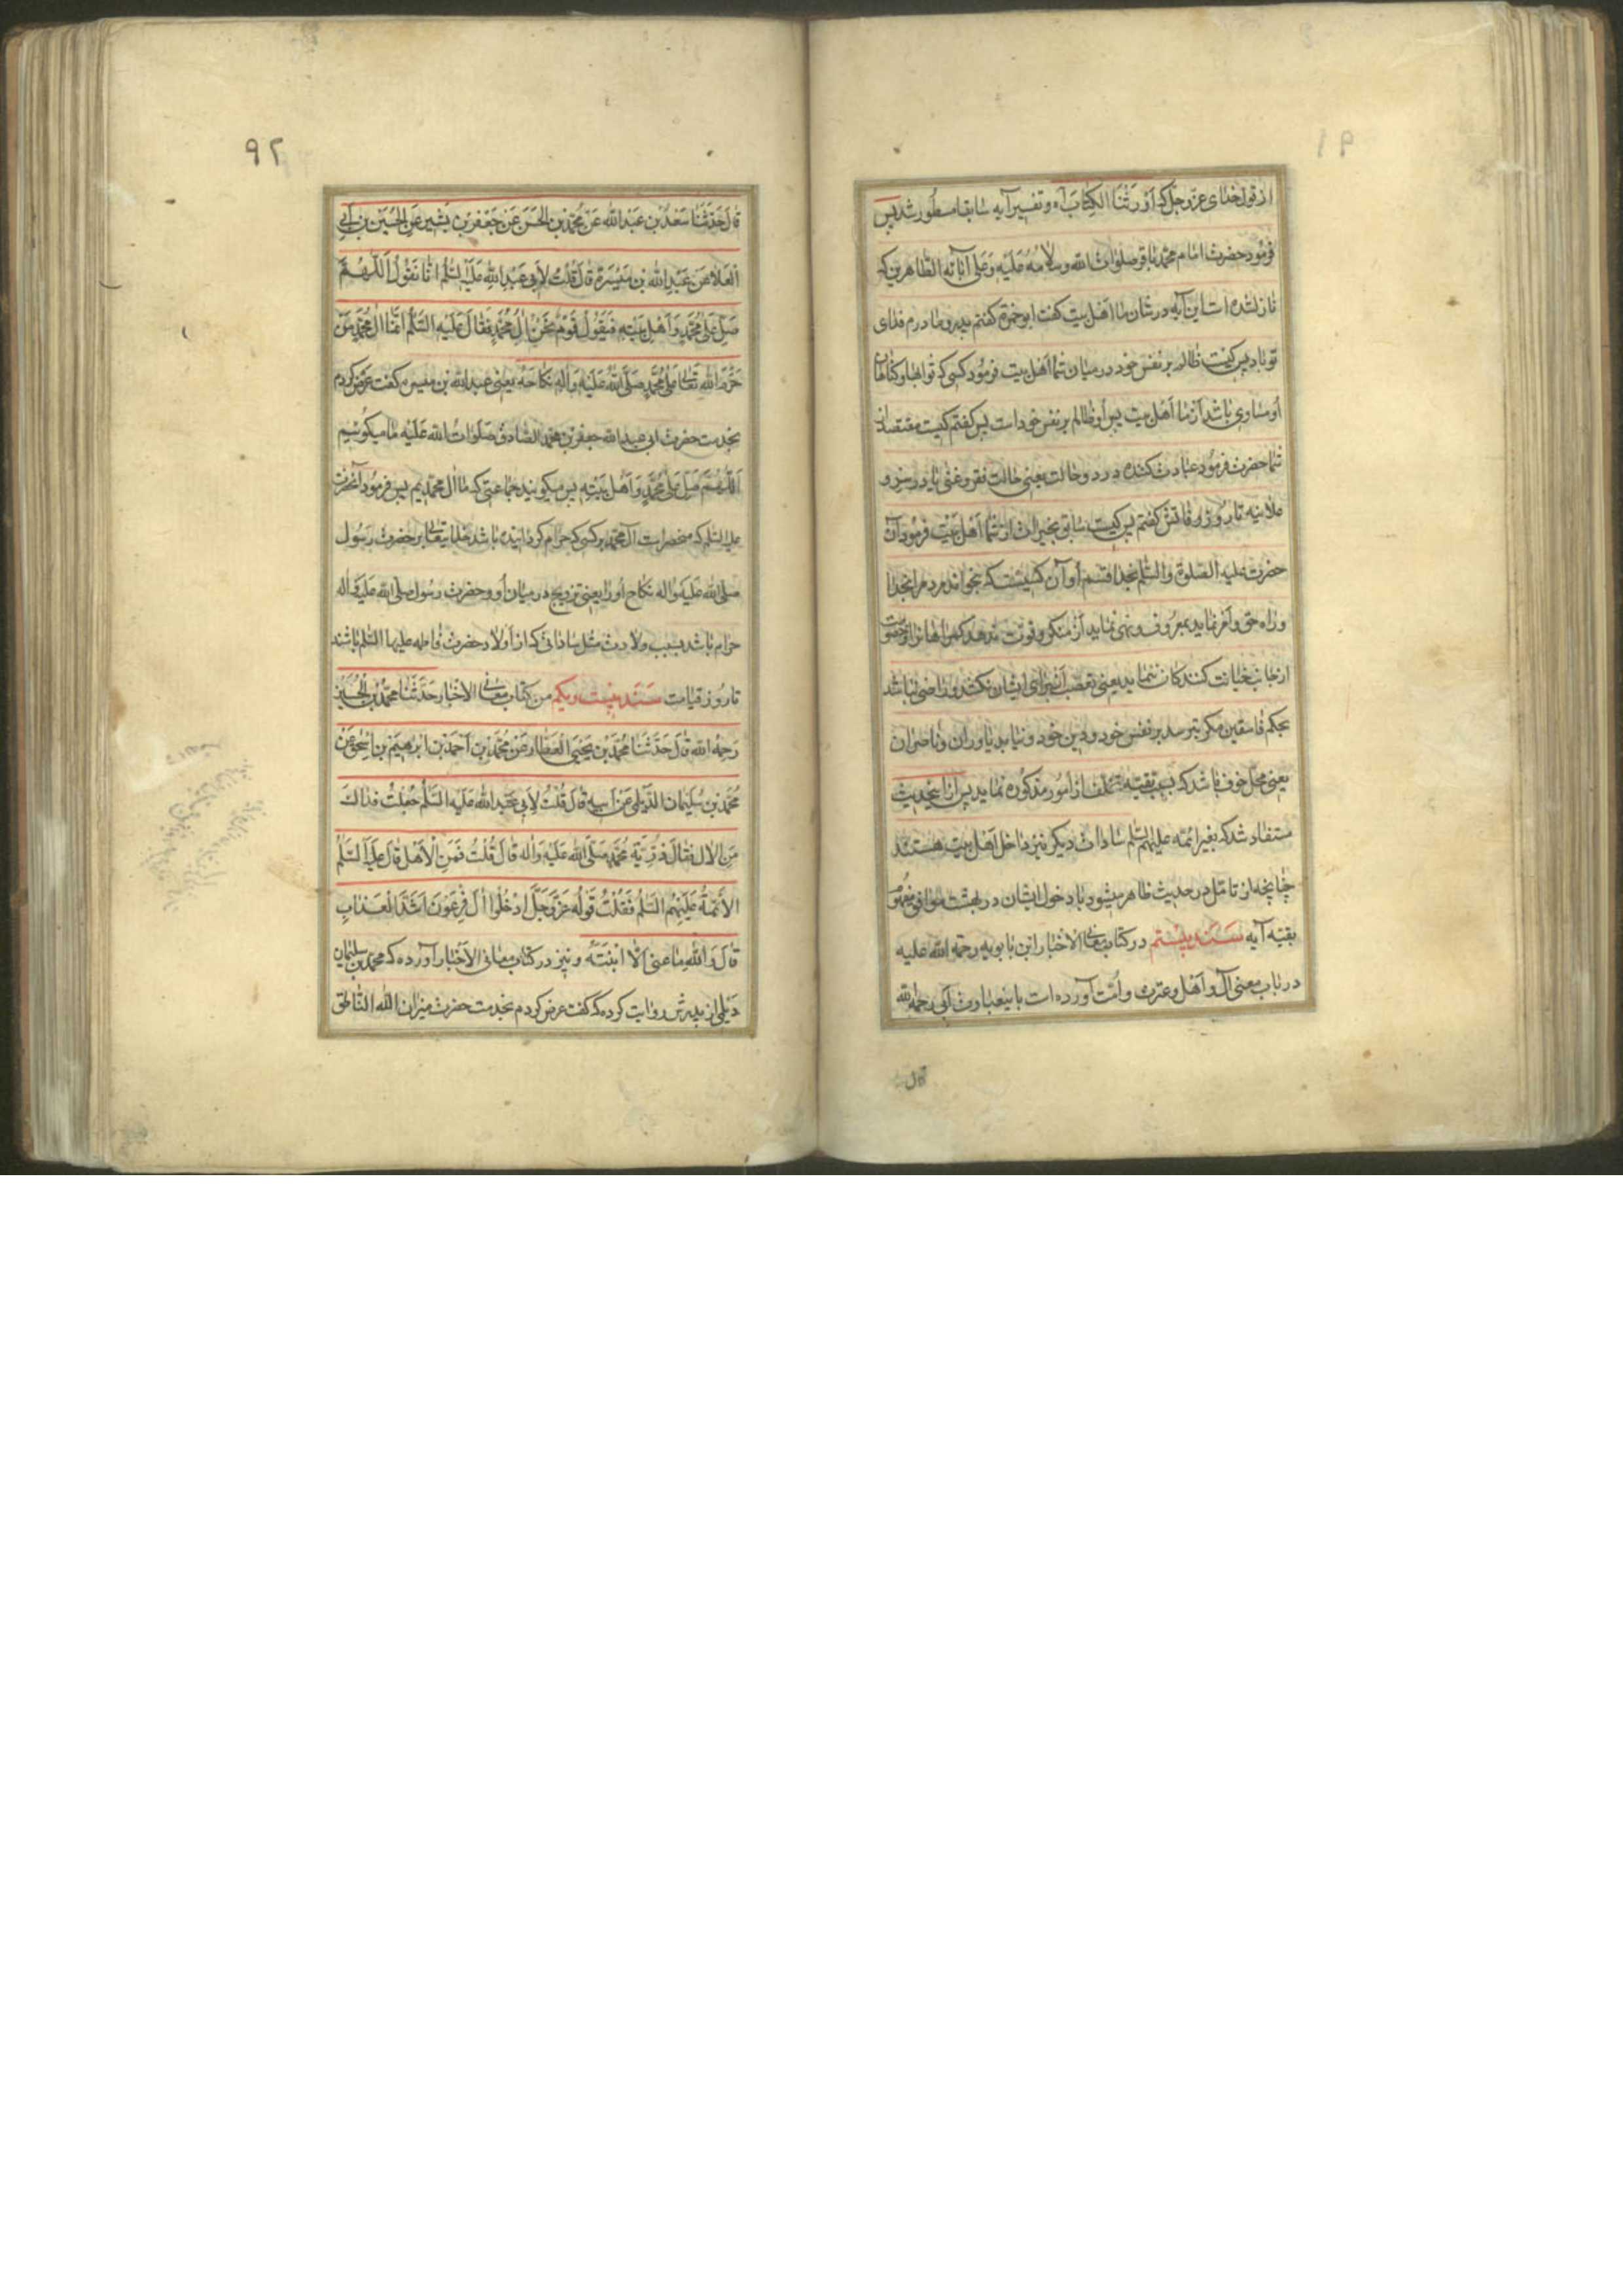 ۹۱
از قول خدای عز و جل که اورثنا الکتاب آه و تفسیر آیه سابقا مسطور شد پس
فرمود حضرت امام محمد باقر صلوات الله و سلامه علیه و علی آبائه الطاهرین که
نازل شده است این آیه در شان ما اهل بیت گفت ابو حمزه گفتم پدر و مادرم فدای
تو باد پس کیست ظالم بر نفس خود در میان شما اهل بیت فرمود کسی که ثوابها و گناهان
او مساوی باشد از ما اهل بیت پس او ظالم بر نفس خود است پس گفتم کیست مقتصد از
شما حضرت فرمود عبادت کننده در دو حالت یعنی حالت فقر و غنی یا در سر و
علانیه تا روز وفاتش گفتم پس کیست سابق بخیرات از شما اهل بیت فرمود آن
حضرت علیه الصلوة والسلم بخدا قسم او آن کسیست که بخواند مردم را بخدا
و راه حق و امر نماید بمعروف و نهی نماید از منکر و قوت ندهد گمراهان را و خصومت
از جانب خیانت کنندکان ننماید یعنی تعصب از برای ایشان نکند و راضی نباشد
بحکم فاسقین مکر بترسد بر نفس خود و دین خود و نیابد یاوران و ناصران
یعنی محل خوف باشد که بسبب تقیه تخلف از امور مذکوره نماید پس از اینحدیث
مستفاد شد که بغیر ائمه علیهم السلم سادات دیکر نیز داخل اهل بیت هستند
چنانچه از تامل در حدیث ظاهر میشود باد دخول ایشان در بهشت موافق مفهوم
بقیه آیه سند بیستم در کتاب معانی الاخبار ابن بابویه رحمه الله علیه
در باب معنی آل و اهل و عترت و امت آورده است باینعبارت ابی رحمه الله
قال
۹۲
قال حَدَّثَنا سَعْدُ بْن عَبْدالله عَنْ مُحَمَّد بْن الحَسَن عَن جَعْفَر بْن بَشیر عَنِ الحُسَیْن بْن اَبی
العَلا عَن عَبْدالله بن مَیْسَرَة قالَ قُلتُ لِاَبی عَبْدِالله عَلَیْه السَّلم انّا نَقُولُ اَللّهُمَّ
صَلِّ عَلی مُحَمَّدٍ وَ اَهْلِ بَیْتِهِ فَیَقُولُ قَوْمٌ نَحْنُ الُ مُحَمَّدٍ فَقالَ عَلَیْهِ السَّلم انَّما الُ مُحَمَّدٍ مَنْ
حَرَّمَ اللهُ تَعالی عَلی مُحَمَّدٍ صَلَّی اللهُ عَلَیْهِ وَالِهِ نِکاحَهُ یعنی عبد الله بن میسره گفت عرض کردم
بخدمت حضرت ابی عبدالله جعفر بن محمد الصادق صلوات الله علیه ما میکوئیم
اَللّهُمَّ صَلِّ عَلی مُحَمَّدٍ وَ اَهْلِ بَیْتِهِ پس میکویند جماعتی که ما ال محمدیم پس فرمود آنحضرت
علیه السلم که منحصر است آل محمد بر کسی که حرام کردانیده باشد خدایتعالی بر حضرت رسول
صلی الله علیه واله نکاح او را یعنی تزویج در میان او و حضرت رسول صلی الله علیه واله
حرام باشد بسبب ولادت مثل ساداتی که از اولاد حضرت فاطمه علیها السلم باشند
تا روز قیامت سند بیست و یکم من کتاب معانی الاخبار حَدَّثَنا مُحَمَّدُ بْنُ الحُسَیْن
رَحِمَهُ الله قالَ حَدَّثَنا مُحَمَّدُ بْن یَحْیَی العَطّار عَنْ مُحَمَّد بْن اَحْمَد عَن ابْرهیم بْن اِسْحق عَنْ
مُحَمَّد بْن سُلَیْمان الدَّیْلَمی عَنْ اَبیهِ قالَ قُلْتُ لِاَبی عَبْدالله عَلَیْه السَّلم جُعِلْتُ فِداکَ
مَنِ الال فَقالَ ذُرِّیَّة مُحَمَّد صَلَّی الله عَلَیْه وَاله قالَ قُلْتُ فَمَنِ الاَهْل قالَ علیه السَّلم
الاَئِمَّةُ عَلَیْهِمُ السَّلم فَقُلْتُ قَوْلُه عَزَّ وَجَلَّ ادْخُلُوا الَ فِرْعَوْنَ اَشَدَّ العَذاب
قالَ وَالله ما عَنی الّا ابْنَتَهُ و نیز در کتاب معانی الاخبار آورده که محمد بن سلیمان
دیلمی از پدرش روایت کرده که گفت عرض کردم بخدمت حضرت میزان الله الناطق